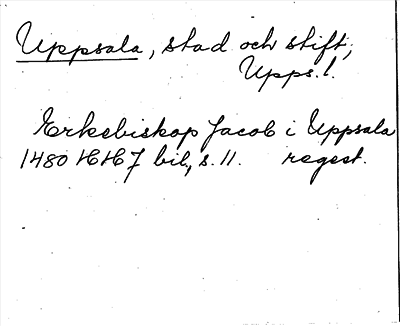 Uppsala, stad och stift,
Upps. l.
Erkebiskop Jacob i Uppsala
1480 HH 7 bil, s. 11. regest.